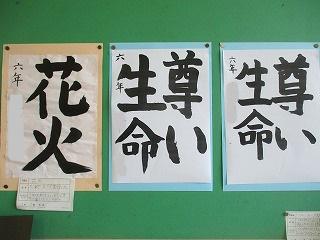 花火
六年
尊い
生命
六年
尊い
生命
六年